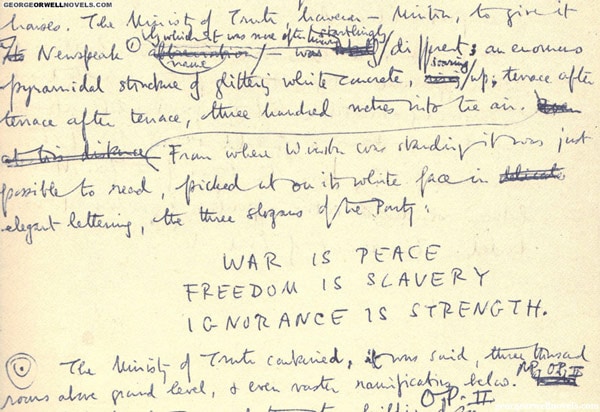 GEORGEORWELLNOVELS.COM
houses. The Ministry of Truth, however – Minitrue, to give it
by which it was more often known startlingly
Newspeak name – was different: an enormous
soaring
pyramidal structure of glittering white concrete, up, terrace after
terrace after terrace, three hundred metres into the air. Even
at this distance From where Winston was standing it was just
possible to read, picked out on its white face in delicate
elegant lettering, the three slogans of the Party:
WAR IS PEACE
FREEDOM IS SLAVERY
IGNORANCE IS STRENGTH.
The Ministry of Truth contained, it was said, three thousand
rooms above ground level, & even vaster ramifications below.
O.P. II